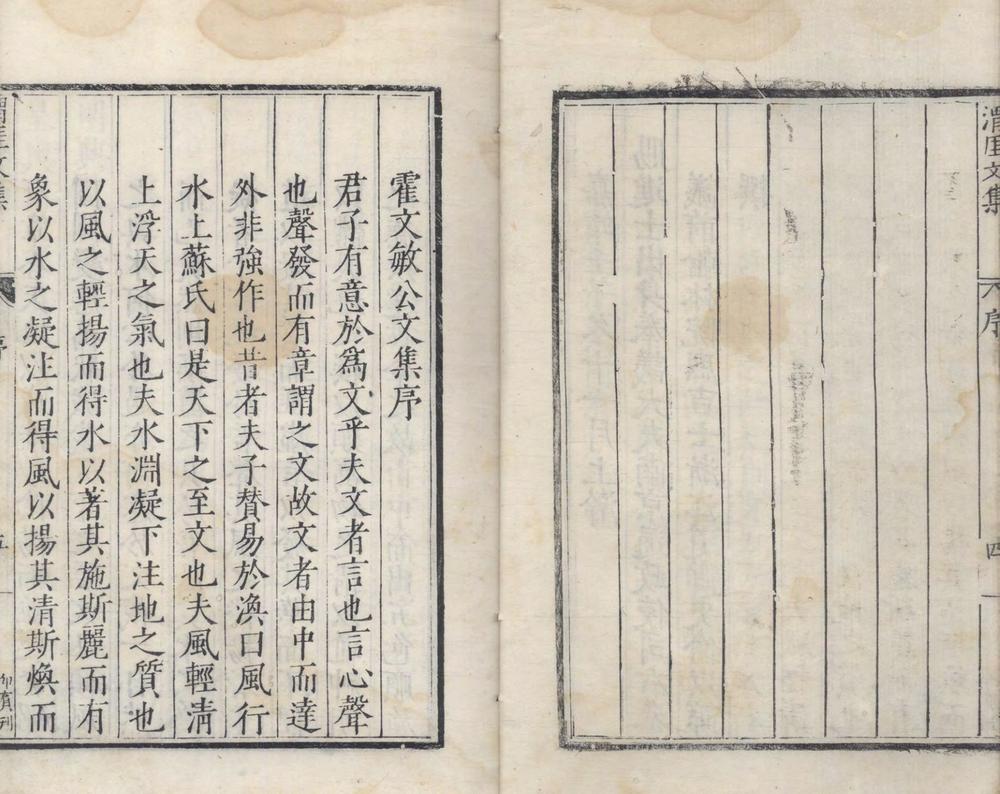 渭厓文集
序
四
霍文敏公文集序
君子有意於爲文乎夫文者言也言心聲
也聲發而有章謂之文故文者由中而達
外非強作也昔者夫子賛易於渙曰風行
水上蘇氏曰是天下之至文也夫風輕清
上浮天之氣也夫水淵凝下注地之質也
以風之輕揚而得水以著其施斯麗而有
象以水之凝注而得風以揚其清斯煥而